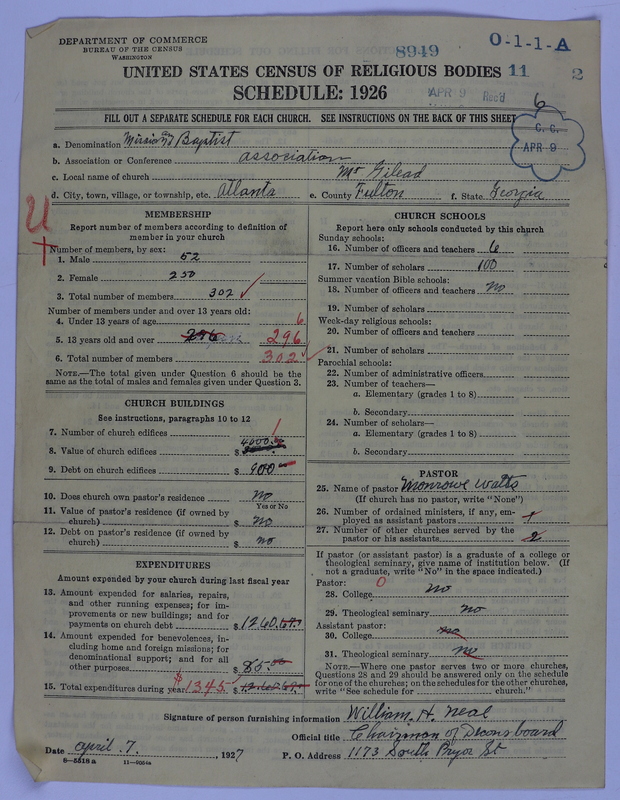 DEPARTMENT OF COMMERCE
BUREAU OF THE CENSUS
WASHINGTON
8949
O-1-1-A
UNITED STATES CENSUS OF RELIGIOUS BODIES 11 2
SCHEDULE: 1926
APR 9 Rec'd 6
FILL OUT A SEPARATE SCHEDULE FOR EACH CHURCH. SEE INSTRUCTIONS ON THE BACK OF THIS SHEET
C. C.
APR 9
a. Denomination Baptist
b. Association or Conference association
c. Local name of church Mt Gilead
d. City, town, village, or township, etc. Atlanta e. County Fulton f. State Georgia
U
MEMBERSHIP
Report number of members according to definition of
member in your church
Number of members, by sex:
1. Male 52
2. Female 250
3. Total number of members 302
Number of members under and over 13 years old:
4. Under 13 years of age 6
5. 13 years old and over 296 296
6. Total number of members 302
NOTE.—The total given under Question 6 should be
same as the total of males and females given under Question 3.
CHURCH BUILDINGS
See instructions, paragraphs 10 to 12
7. Number of church edifices 1
8. Value of church edifices $ 4000.
9. Debt on church edifices $ 900
10. Does church own pastor's residence No
Yes or No
11. Value of pastor's residence (if owned by
church) $ No
12. Debt on pastor's residence (if owned by
church) $ no
EXPENDITURES
Amount expended by your church during last fiscal year
13. Amount expended for salaries, repairs,
and other running expenses; for im-
provements or new buildings; and for
payments on church debt $ 1260.
14. Amount expended for benevolences, in-
cluding home and foreign missions; for
denominational support; and for all
other purposes $ 85.00
15. Total expenditures during year $1345 $
CHURCH SCHOOLS
Report here only schools conducted by this church
Sunday schools:
16. Number of officers and teachers 6
17. Number of scholars 100
Summer vacation Bible schools:
18. Number of officers and teachers No
19. Number of scholars
Week-day religious schools:
20. Number of officers and teachers
21. Number of scholars
Parochial schools:
22. Number of administrative officers
23. Number of teachers—
a. Elementary (grades 1 to 8)
b. Secondary
24. Number of scholars—
a. Elementary (grades 1 to 8)
b. Secondary
PASTOR
25. Name of pastor Monrowe Watts
(If church has no pastor, write "None")
26. Number of ordained ministers, if any, em-
ployed as assistant pastors
27. Number of other churches served by the
pastor or his assistants 2
If pastor (or assistant pastor) is a graduate of a college or
theological seminary, give name of institution below. (If
not a graduate, write "No" in the space indicated.)
Pastor: O
28. College No
29. Theological seminary no
Assistant pastor:
30. College no
31. Theological seminary no
NOTE.—Where one pastor serves two or more churches,
Questions 28 and 29 should be answered only on the schedule
for one of the churches; on the schedules for the other churches,
write "See schedule for church."
Signature of person furnishing information William H. Neal
Official title Chairman of Decons board
Date april. 7. 1927 P. O. Address 1173 South Pryor St
8-5518 a 11-9054a